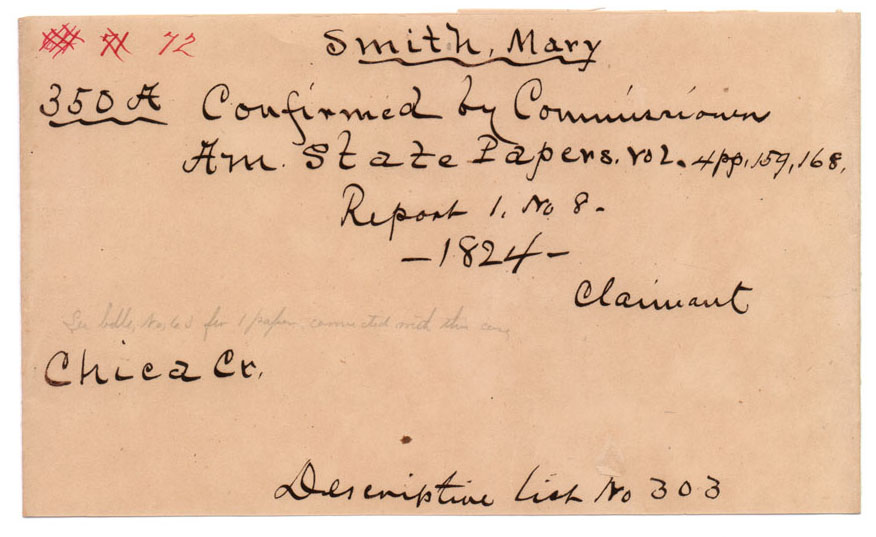 72 Smith, Mary
350 A Confirmed by Commissioners
Am. State Papers. vol. 4 pp. 159, 168.
Report 1. No 8.
-1824-
Claimant
See bdle. No. 63 for 1 paper connected with this case
Chica Cr.
Descriptive list No 303